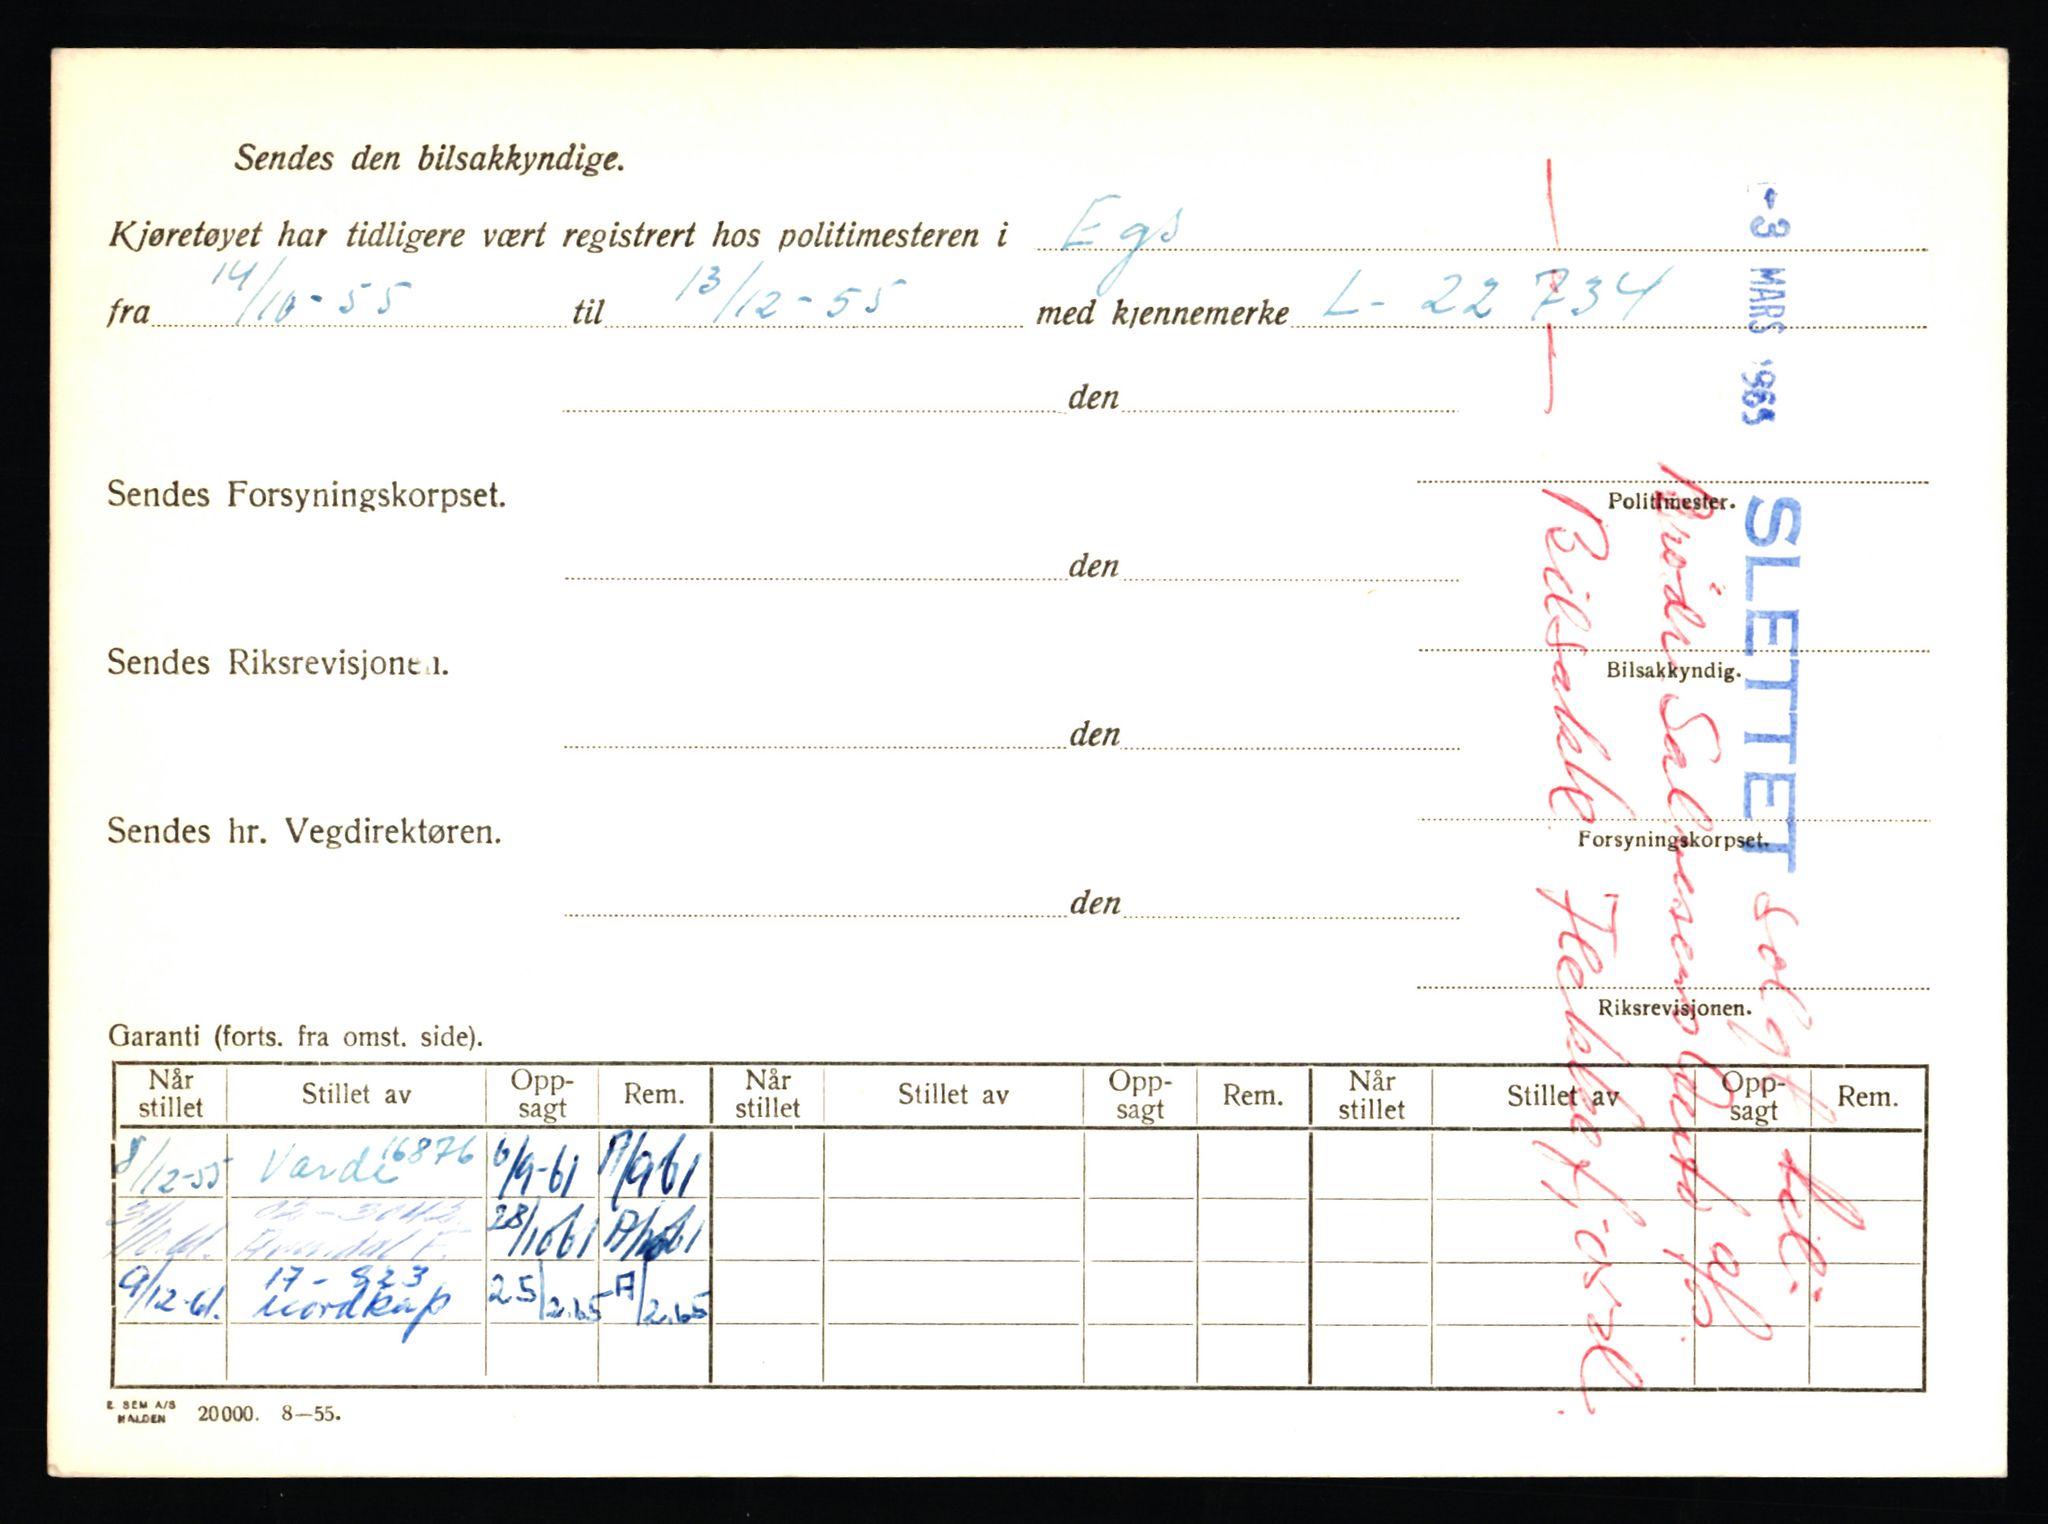 Sendes den bilsakkyndige.
Kjøretøyet har tidligere vært registrert hos politimesteren i Egs
fra 14/10-55 til 13/12-55 med kjennemerke L- 22 734
den
Politimester.
Sendes Forsyningskorpset.
den
Bilsakkyndig.
Sendes Riksrevisjonen.
den
Forsyningskorpset.
Sendes hr. Vegdirektøren.
den
Riksrevisjonen.
-3 MARS 1965 SLETTET solgt til:
Brødr. Salvesens
Bilsakk. Flekkefj.
Garanti (forts. fra omst. side).
Når stillet Stillet av Opp-sagt Rem. Når stillet Stillet av Opp-sagt Rem. Når stillet Stillet av Opp-sagt Rem.
8/12-55 Varde 16876 6/9-61 17/961
31/10.61. Arendal F. 28/1061
9/12-61. 17-823 Nordkap 25/2.65 A/2.65
E. SEM A/S HALDEN 20000. 8—55.